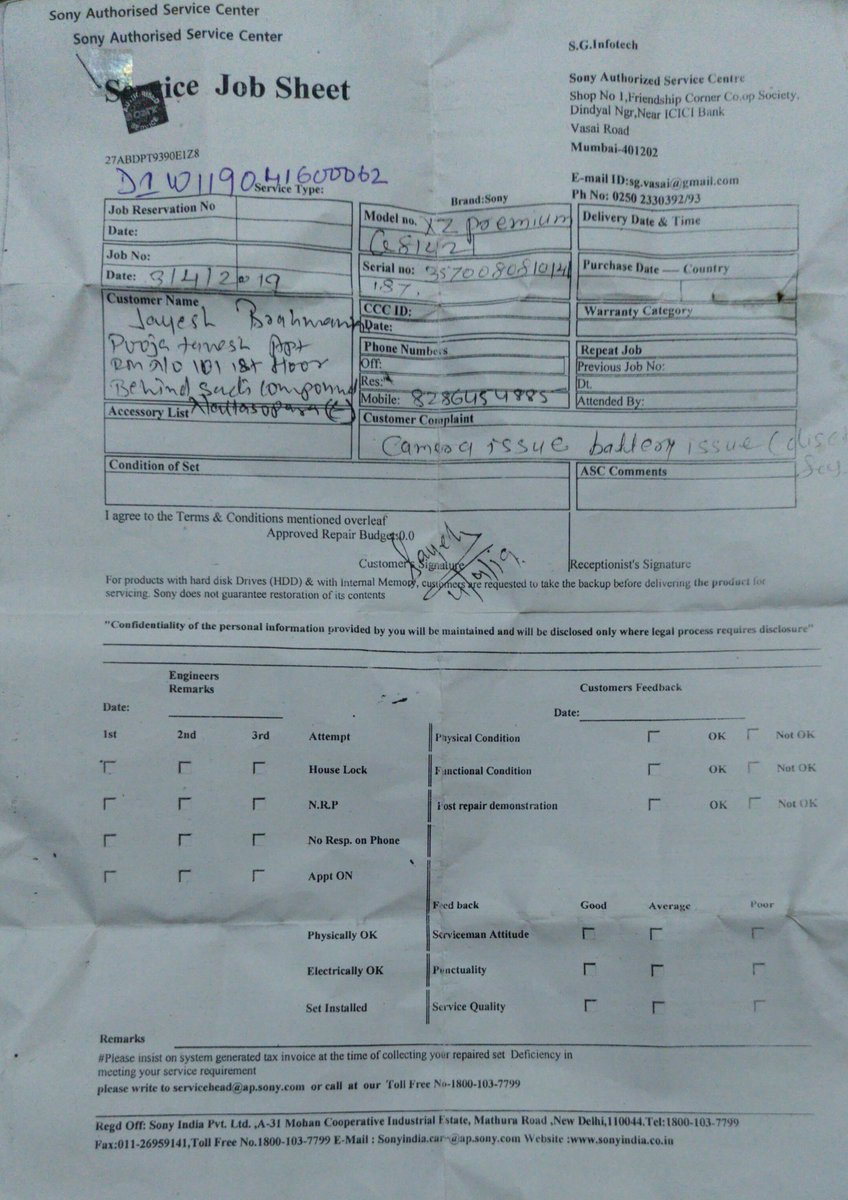 Sony Authorised Service Center
Sony Authorised Service Center
Service Job Sheet
S.G.Infotech
Sony Authorized Service Centre
Shop No 1,Friendship Corner Co.op Society,
Dindyal Ngr,Near ICICI Bank
Vasai Road
Mumbai-401202
E-mail ID:sg.vasai@gmail.com
Ph No: 0250 2330392/93
27ABDPT9390E1Z8
D1W119041600062
Service Type:
Brand:Sony
Job Reservation No
Date:
Job No:
Date: 3/4/2019
Customer Name
Jayesh
Pooja
1st floor
Behind compound
Accessory List
Model no. XZ premium
G8142
Serial no:
187.
CCC ID:
Date:
Phone Numbers
Off:
Res:
Mobile: 8286454885
Delivery Date & Time
Purchase Date — Country
Warranty Category
Repeat Job
Previous Job No:
Dt.
Attended By:
Customer Complaint
Camera issue battery issue
Condition of Set
ASC Comments
I agree to the Terms & Conditions mentioned overleaf
Approved Repair Budget:0.0
Customer's Signature
Jayesh
Receptionist's Signature
For products with hard disk Drives (HDD) & with Internal Memory, customers are requested to take the backup before delivering the product for
servicing. Sony does not guarantee restoration of its contents
"Confidentiality of the personal information provided by you will be maintained and will be disclosed only where legal process requires disclosure"
Engineers
Remarks
Date:
Customers Feedback
Date:
1st 2nd 3rd Attempt
House Lock
N.R.P
No Resp. on Phone
Appt ON
Physically OK
Electrically OK
Set Installed
Physical Condition OK Not OK
Functional Condition OK Not OK
Post repair demonstration OK Not OK
Feed back Good Average Poor
Serviceman Attitude
Punctuality
Service Quality
Remarks
#Please insist on system generated tax invoice at the time of collecting your repaired set Deficiency in
meeting your service requirement
please write to servicehead@ap.sony.com or call at our Toll Free No-1800-103-7799
Regd Off: Sony India Pvt. Ltd. ,A-31 Mohan Cooperative Industrial Estate, Mathura Road ,New Delhi,110044.Tel:1800-103-7799
Fax:011-26959141,Toll Free No.1800-103-7799 E-Mail : Sonyindia.care@ap.sony.com Website :www.sonyindia.co.in